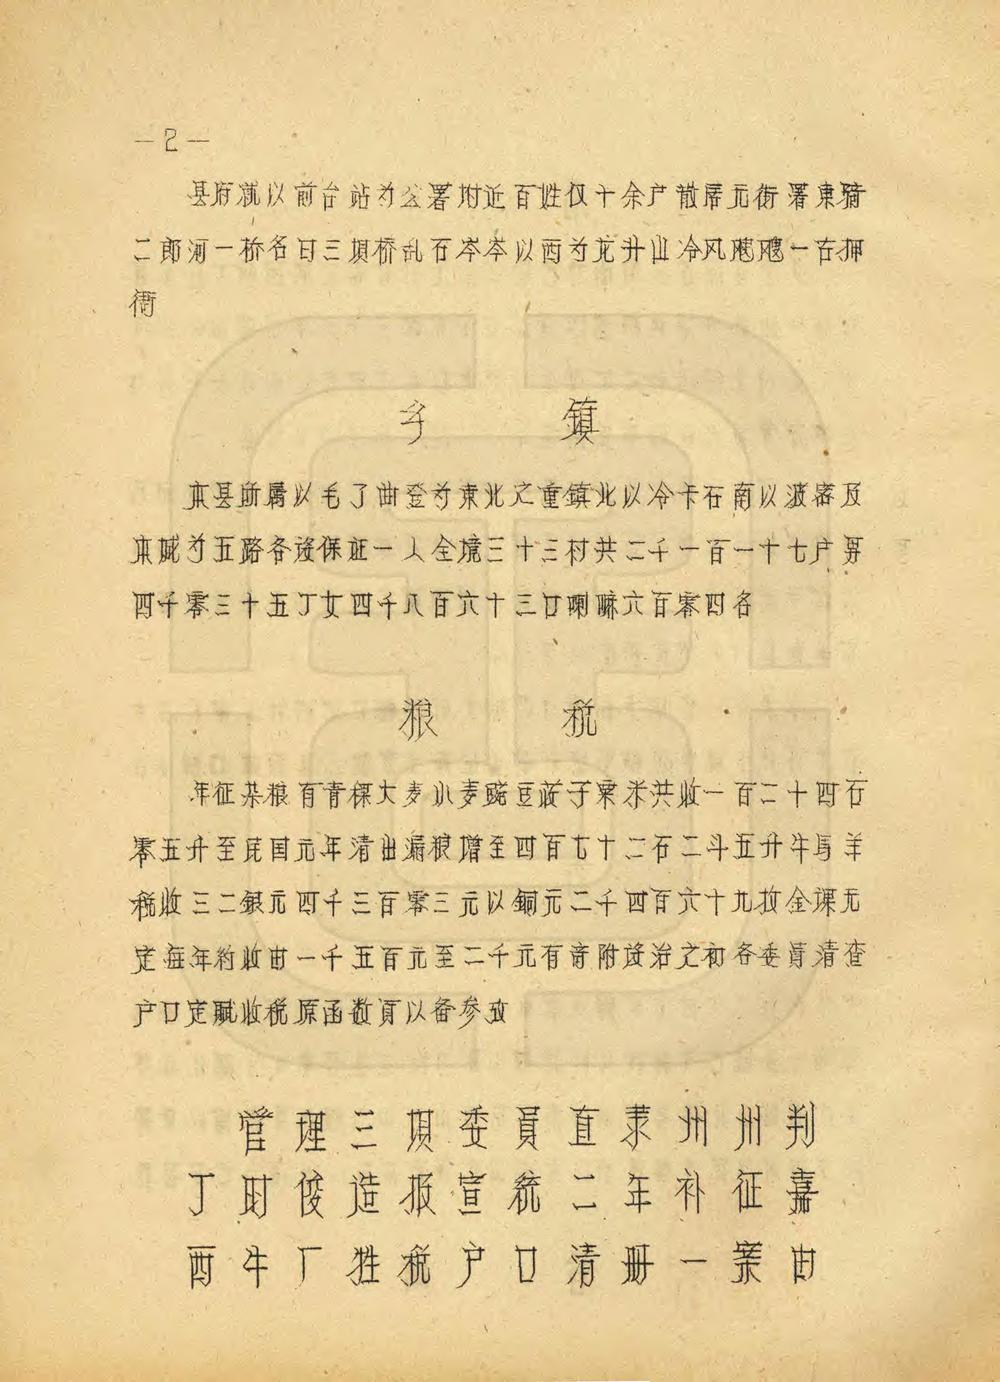 —2—
县府就以前台站为公署附近百姓仅十余户散居元街署东跨
二郎河一桥名曰三埧桥乱石岑岑以西为龙升山冷风飕飕一右押
衙
乡 镇
本县所属以毛了曲登为东北之重镇北以冷卡石南以波密及
本城为五路各设保正一人全境三十三村共二千一百一十七户男
四千零三十五丁女四千八百六十三口喇嘛六百零四名
粮 税
年征杂粮有青稞大麦小麦豌豆菽子粟米共收一百二十四石
零五升至民国元年清出漏粮增至四百七十二石二斗五升牛马羊
税收三二银元四千三百零三元以铜元二千四百六十九枚金课无
定每年约收由一千五百元至二千元有奇附设治之初各委员清查
户口定赋收税原函数頁以备参攷
管理三埧委员直隶州州判
丁財俊造报宣统二年补征嘉
西牛厂牲税户口清册一案由